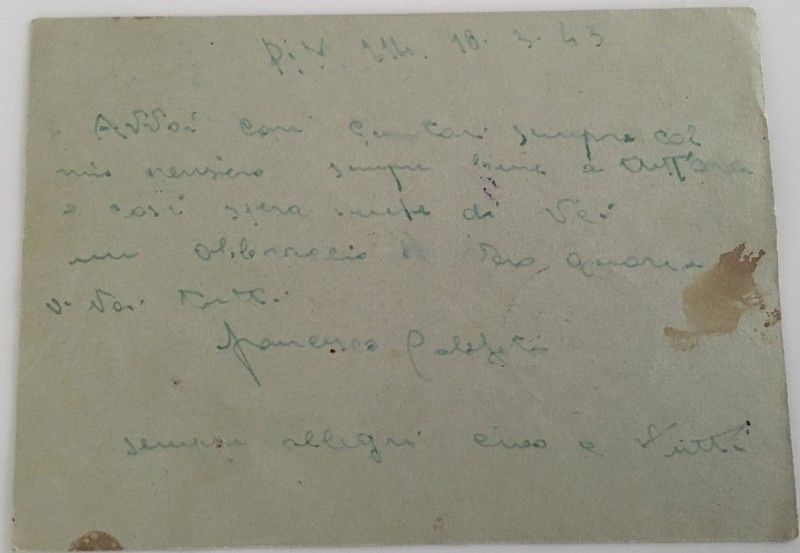 P.M. 114. 18. 3. 43
A Voi cari Genitori sempre col
mio pensiero sempre bene a tutt'ora
e così spera anche di Voi
un abbraccio
a Voi tutti
Francesco
sempre allegri ciao a tutti